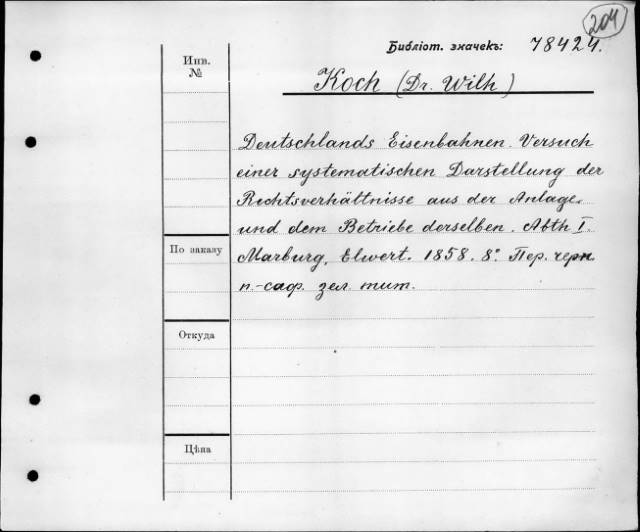 204
Библіот. значекъ: 78424.
Инв.
№
Koch (Dr. Wilh)
Deutschlands Eisenbahnen. Versuch
einer systematischen Darstellung der
Rechtsverhältnisse aus der Anlage
und dem Betriebe derselben. Abth I.
Marburg, Elwert. 1858. 8° Пер. черн.
п.-саф. зел. тит.
По заказу
Откуда
Цѣна